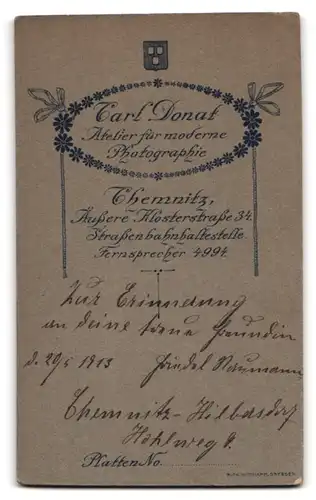 Carl Donat
Atelier für moderne
Photographie
Chemnitz,
Äußere Klosterstraße 34.
Straßenbahnhaltestelle.
Fernsprecher 4994.
Zur Erinnerung
an deine treue Freundin
d. 29/5 1913 Friedel Naumann
Chemnitz-Hilbersdorf
Hohlweg 9.
Platten No.